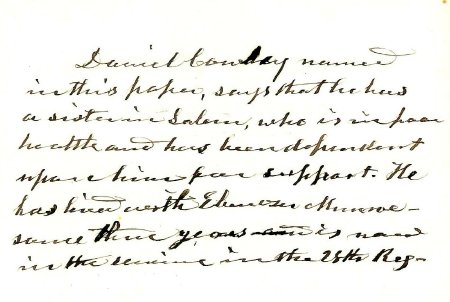 Daniel Conway named
in this paper, says that he has
a sister in Salem, who is in poor
health and has been dependent
upon him for support. He
has lived with Ebenezer Munroe
some three years and is now
in the service in the 28th Reg-